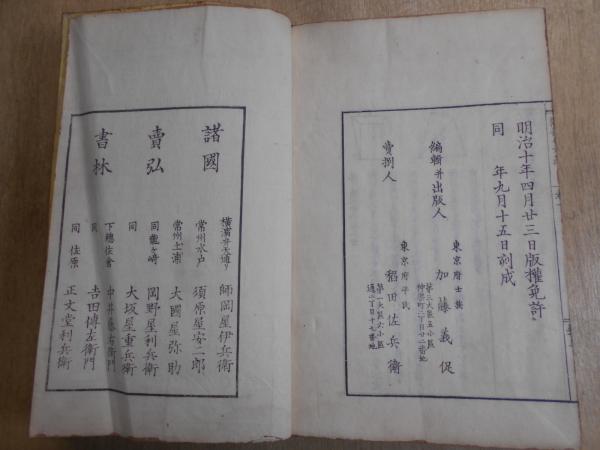 明治十年四月廿三日版權免許
同　年九月十五日刻成
編輯并出版人
東京府士族
加藤義促
第三大區五小區
神樂町二丁目廿二番地
賣捌人
東京府平民
稻田佐兵衞
第一大區六小區
通二丁目十七番地
諸國
賣弘
書林
横濱弁天通リ
師岡屋伊兵衞
常州水戸
須原屋安二郎
常州土浦
大國屋弥助
同龍ヶ崎
岡野屋利兵衞
同
大坂屋重兵衞
下總佐倉
𠮷田傳左衞門
同佐原
正文堂利兵衞